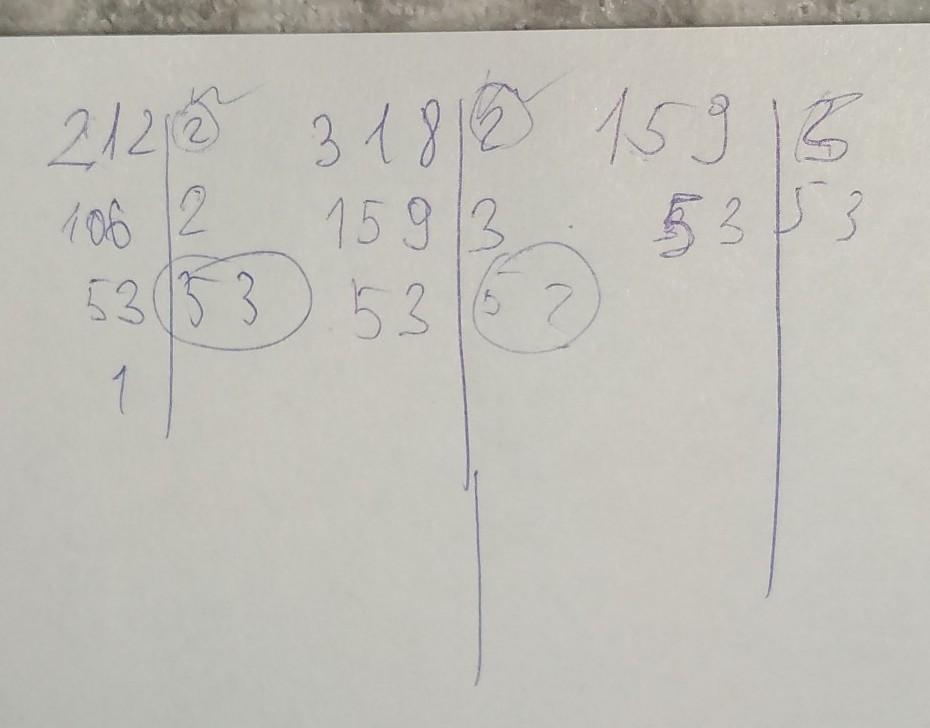 212 2 318 2 159
106 2 159 3 53 53
53 53 53 5
1